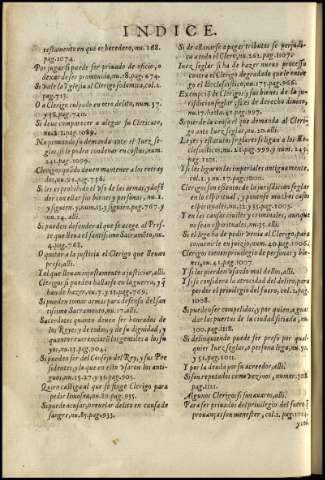 INDICE.
testamento en que es heredero, nu. 268.
pag. 1074.
Por jugar si puede ser privado de oficio, o
dexar de ser promovido, nu. 18. pag. 674.
Si vale la Iglesia al Clerigo sodomita, col. 2.
pag. 713.
O a Clerigo culpado en otro delito, num. 37.
y 38. pag. 740.
Si deve comparecer a alegar su Clericato,
nu. 221. pag. 1089.
No poniendo su demanda ante el Iuez seglar,
si le podrà condenar en costas, num.
241. pag. 1009.
Clerigos quãdo deven mantener a los retraydos,
nu. 59. pag. 754.
Si les es prohibido el uso de las armas, y defender
con ellas sus bienes y personas, nu. 1.
y siguient. y num. 13. y siguient. pag. 767. y
nu. 24. alli.
Si pueden defender al que se acoge al Preste
que lleva el santissimo Sacramẽto, nu.
4. pag. 768.
O quitar a la justicia el Clerigo que llevan
preso, alli.
Y al que llevan injustamente a justiciar, alli.
Clerigos si pueden hallarse en la guerra, y
han de hazer, nu. 7. y 10. pag. 769.
Si pueden tomar armas para defensa del santissimo
Sacramento, nu. 17. alli.
Sacerdotes que deven ser honrados de
los Reyes: y de todos, y de su dignidad, y
quanto reverenciarõ los gentiles a los suyos,
nu. 13. pag. 904.
Si pueden ser del Consejo del Rey, y sus Presidentes,
y lo que en esto usaron los antiguos,
nu. 25. 27. y 30. pag. 905.
Quien castigarà al que se finge Clerigo para
pedir limosna, nu. 80. pag. 935.
Si puede acusar, o revelar delito en causa de
sangre, nu. 85. pag. 933.
Si de escusarse a pagar tributos se perjudicara
a todo el Clero, nu. 262. pag. 1107.
Iuez seglar si ha de hazer nuevo processo
contra el Clerigo degradado que le entrego
el Ecclesiastico, nu. 171. pag. 966.
Exempcion de Clerigos, y sus bienes de la jurisdicion
seglar, si es de derecho divino,
nu. 17. hasta 20. pag. 997.
Si puede el consul ser demandado el Clerigo
ante Iuez seglar, nu. 20. alli.
Leyes y estatutos seglares si ligan a los Ecclesiasticos,
nu. 21. pag. 999. y num. 245.
pag. 1101.
Y si les ligavan las imperiales antiguamente,
col. 1. y nu. 17. pag. 1010.
Clerigos son essentos de la jurisdicion seglar
en lo espiritual, y puntos mixtos con lo
espiritual, nu. 22. y 23. pag. 1005.
Y en las causas civiles y criminales, aunque
no sean espirituales, nu. 35. alli.
Si el lego ha de pedir venia al Clerigo, para
convenirle en juyzio, num. 40. pag. 1006.
Clerigos tienen privilegio de personas y bienes,
nu. 41. pag. 1007.
Y si les pierden usando mal dellos, alli.
Y si se considera la atrocidad del delito, para
perder el privilegio del fuero, col. 2. pag.
1008.
Si pueden ser compelidos, y por quien, a guardar
las puertas de la ciudad sitiada, nu.
300. pag. 1118.
Si delinquendo puede ser preso por qualquier
Iuez seglar, o persona lega, nu. 50.
y 51. pag. 1011.
Y a la deuda por su acreedor, alli.
Si son reputados como vezinos, numer. 308
pag. 1121.
Algunos Clerigos si son avaros, alli.
Para ser privados del privilegio del fuero si
provanças son menester, col. 2. pag. 1014.